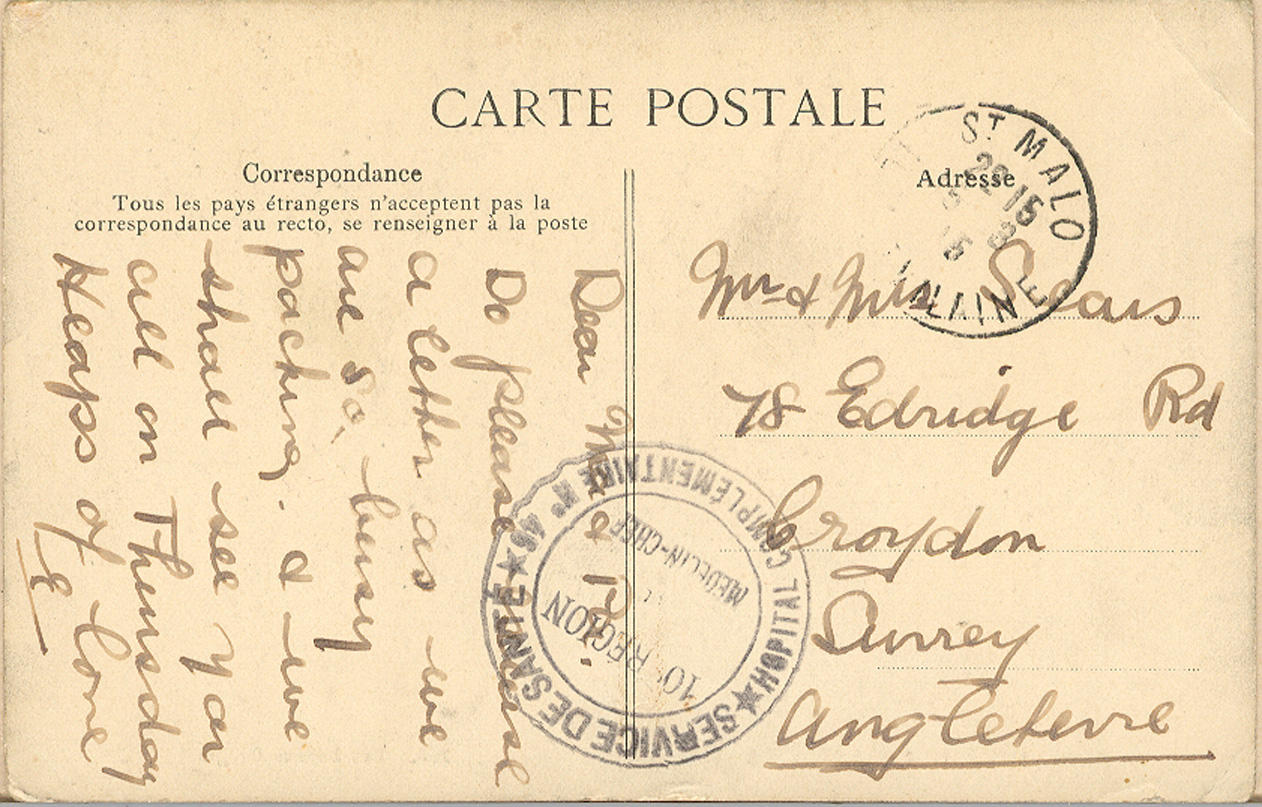 CARTE POSTALE
Correspondance
Tous les pays étrangers n'acceptent pas la
correspondance au recto, se renseigner à la poste
Adresse
Dear
Do please excuse
a letter as we
are so, busy
packing. & we
shall see you
all on Thursday
Heaps of love
E
Mr & Mrs Sears
78 Edridge Rd
Croydon
Surrey
Angleterre
ST MALO
22 15
SERVICE DE SANTÉ ★ HOPITAL COMPLÉMENTAIRE Nº
MEDECIN-CHEF
10e RÉGION